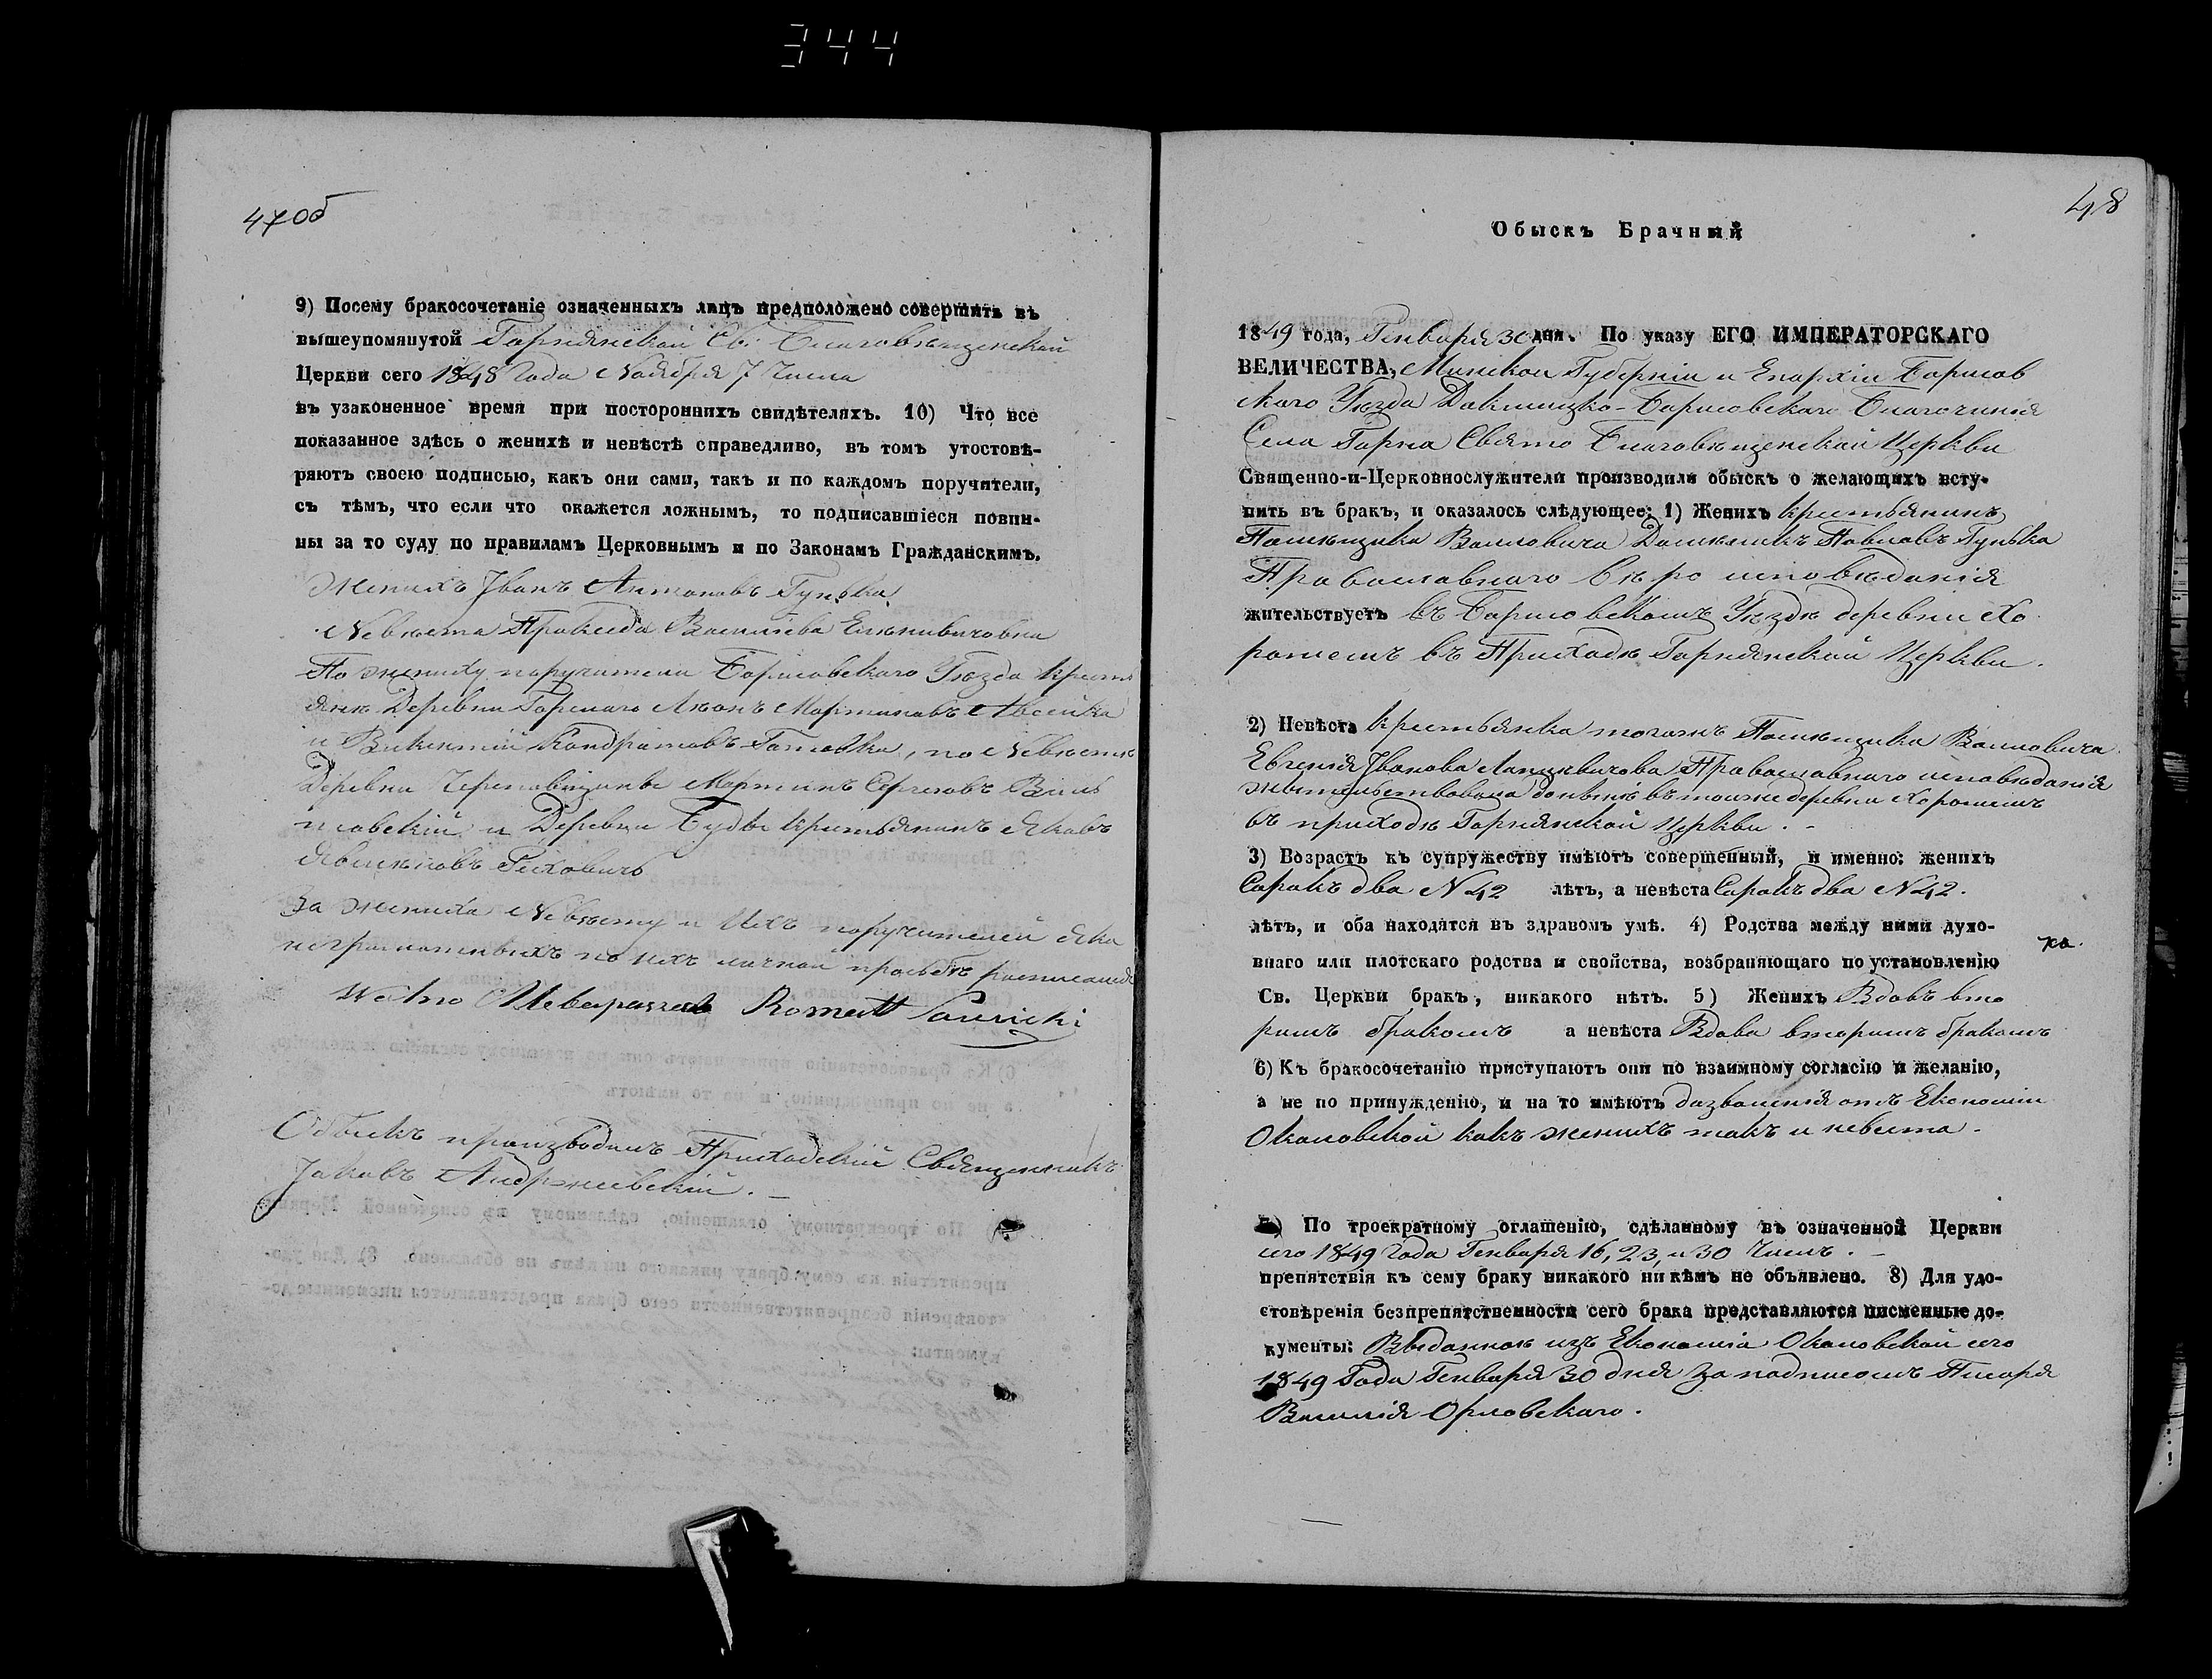 344
47об
9) Посему бракосочетаніе означенныхъ лицъ предположено совершить въ
вышеупомянутой Горнянской Св: Благовѣщенской
Церкви сего 1848 Года Ноября 7 Числа
въ узаконенное время при постороннихъ свидѣтеляхъ. 10) Что все
показанное здѣсь о женихѣ и невѣстѣ справедливо, въ томъ утостовѣ-
ряютъ своею подписью, какъ они сами, такъ и по каждомъ поручители,
съ тѣмъ, что если что окажется ложнымъ, то подписавшіеся повин-
ны за то суду по правиламъ Церковнымъ и по Законамъ Гражданскимъ.
Женихъ Іванъ Антоновъ Гунька
Невѣста Праксида Васильева
По жениху поручители Борисовскаго Уѣзда крестъ
яне Деревни Мартиновъ
и Викентій Кондратовъ по Невѣстѣ
Деревни Мартинъ Сергѣевъ
и Деревни крестьянинъ Яковъ
За жениха Невѣсту и Ихъ поручителей яко
неграмотныхъ по ихъ личной прозьбѣ росписался
Romatt
Обыскъ производилъ Приходскій Священникъ
Іаковъ Андржеевскій. -
48
Обыскъ Брачный
1849 года, Генваря 30 дня. По указу ЕГО ИМПЕРАТОРСКАГО
ВЕЛИЧЕСТВА, Минской Губерніи и Епархіи Борисов
скаго Уѣзда Докшицко-Борисовскаго Благочинія
Села Горна Свято Благовѣщенской Церкви
Священно-и-Церковнослужители производили обыскъ о желающихъ всту-
пить въ бракъ, и оказалось слѣдующее: 1) Женихъ крестьянинъ
Помѣщика Воиловича Павловъ Гунька
Православнаго вѣро исповѣданія
жительствуетъ въ Борисовскомъ Уѣздѣ деревни Хо
рошемъ въ Приходѣ Горнянской Церкви.
2) Невѣста крестьянка тогожъ Помѣщика Воиловича
Евгенія Іванова Православнаго исповѣданія
жительствовала донынѣ въ тойже деревни Хорошемъ
въ приходѣ Горнянской Церкви. -
3) Возрастъ къ супружеству имѣютъ совершенный, и именно: женихъ
Сорокъ два N 42 лѣтъ, а невѣста Сорокъ два N 42.
лѣтъ, и оба находятся въ здравомъ умѣ. 4) Родства между ними духо-
ка.
внаго или плотскаго родства и свойства, возбраняющаго по установленію
Св. Церкви бракъ, никакого нѣтъ. 5) Женихъ Вдовъ вто
рымъ бракомъ а невѣста Вдова вторимъ бракомъ
6) Къ бракосочетанію приступаютъ они по взаимному согласію и желанію,
а не по принужденію, и на то имѣютъ дозволенія отъ Економіи
Околовской какъ женихъ такъ и невѣста.
7) По троекратному оглашенію, сдѣланному въ означенной Церкви
сего 1849 Года Генваря 16, 23, и 30 Числ. -
препятствія къ сему браку никакого никѣмъ не объявлено. 8) Для удо-
стовѣренія безпрепятственности сего брака представляются писменные до-
кументы: Выданное изъ Економіи Околовской сего
1849 Года Генваря 30 дня за подписомъ Писаря
Василія Орловскаго.